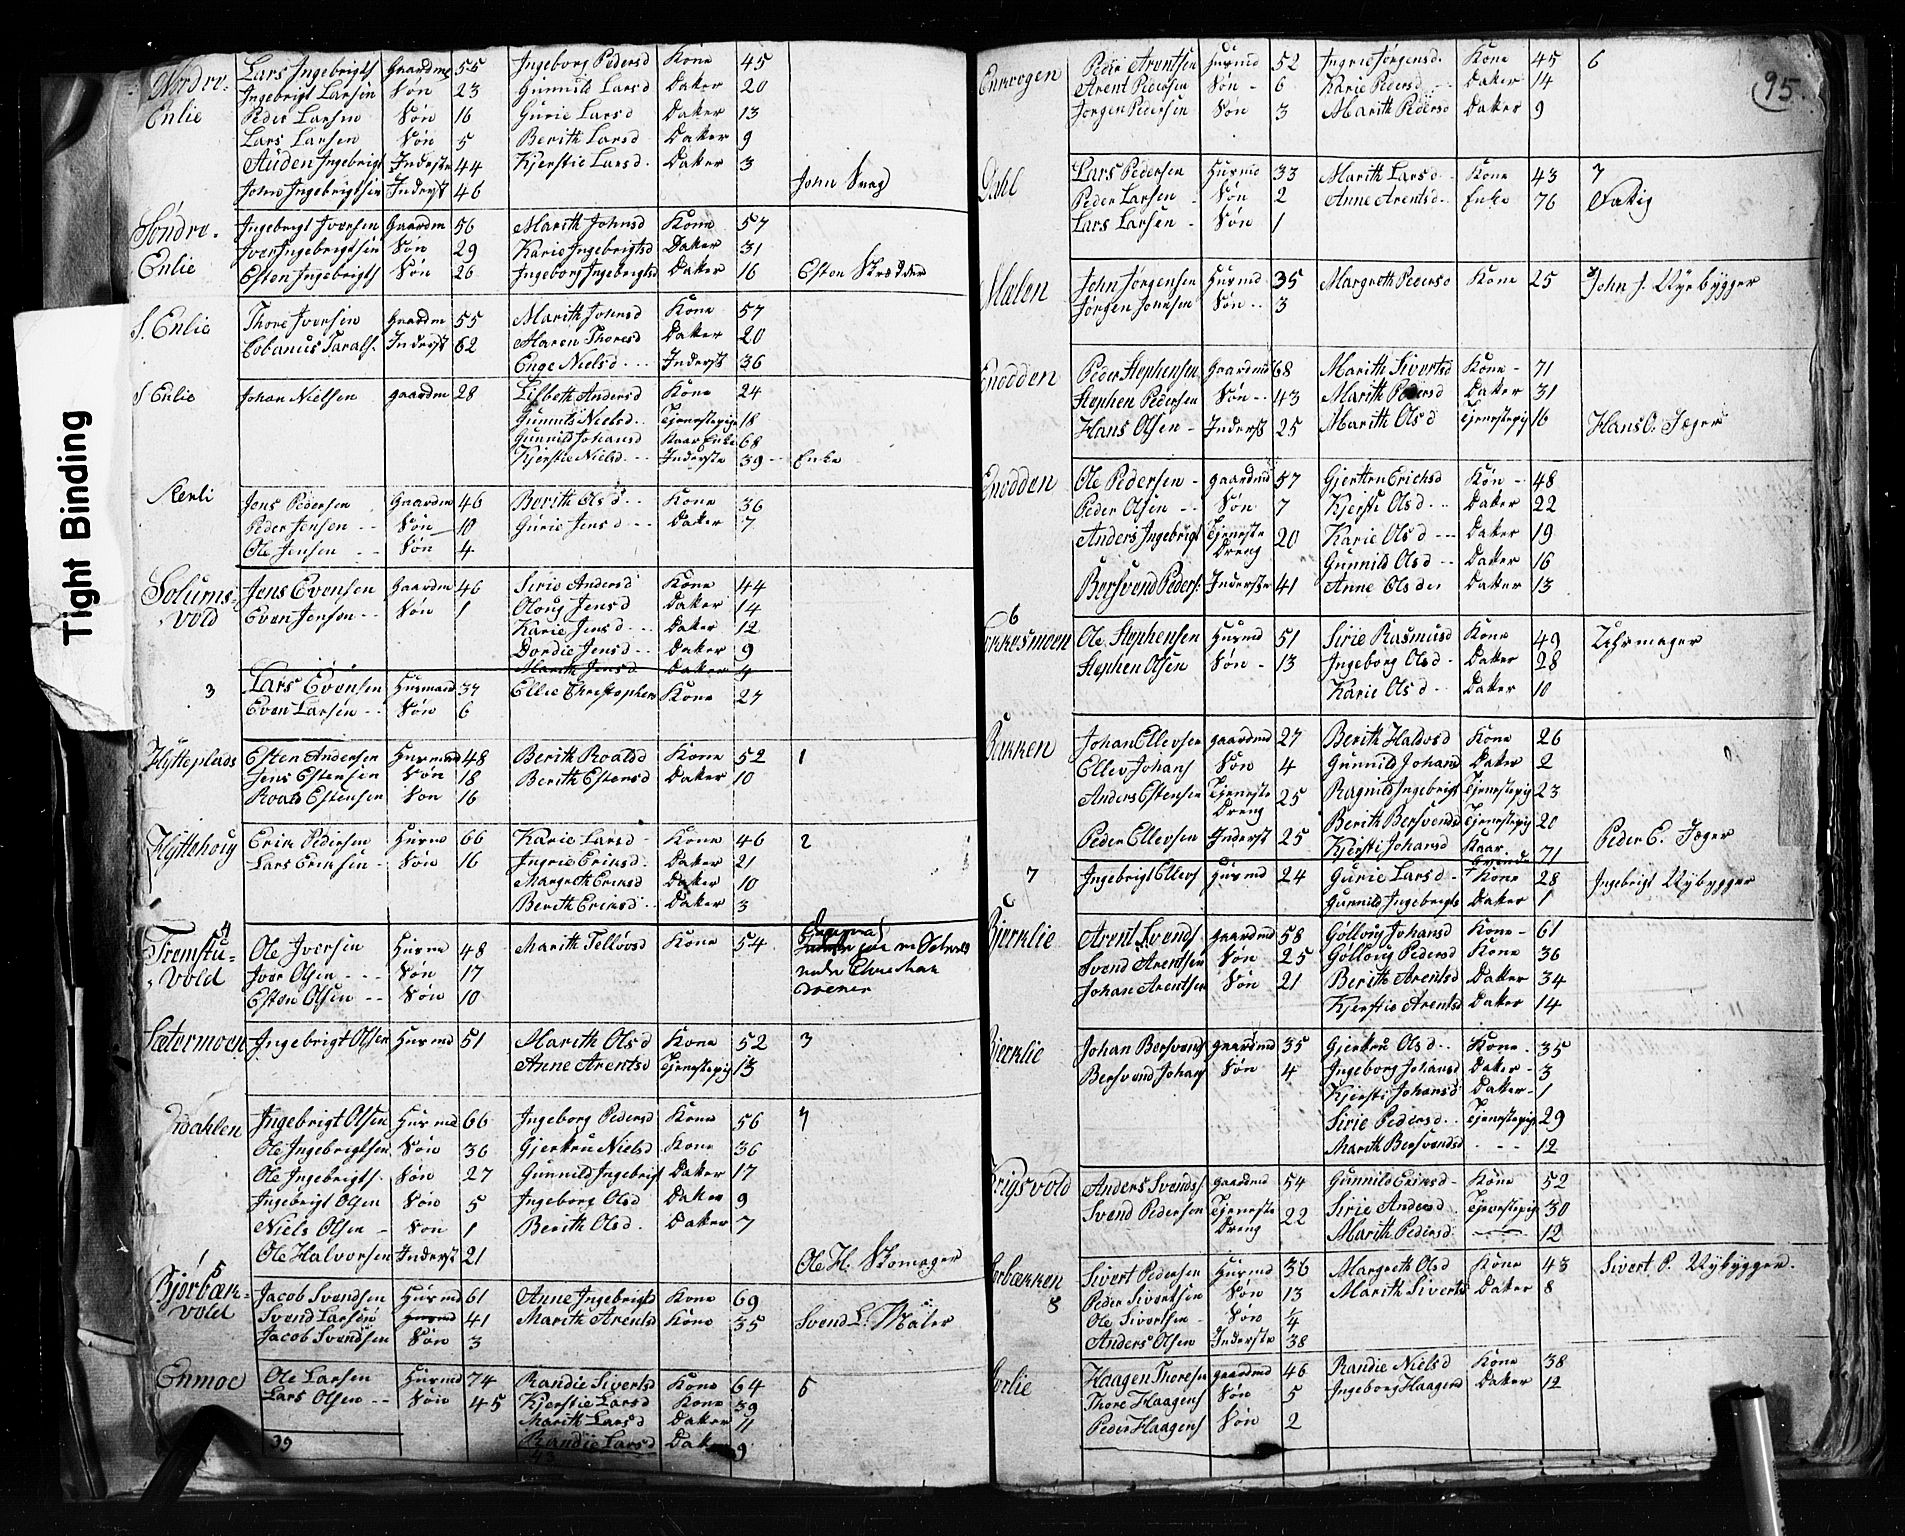 Tight Binding
Nordre Lars Ingebrigts Gaardm 55 Ingeborg Pedersd Kone 45
Enlie Ingebrigt Larsen Søn 23 Gunnild Larsd Datter 20
Peder Larsen Søn 16 Gurie Larsd Datter 13
Lars Larsen Søn 5 Berith Larsd Datter 9
Auden Ingebrigt Inderste 44 Kjerstie Larsd Datter 3
John Ingebrigtsen Inderst 46 John
Søndre Ingebrigt Iversen Gaardm 56 Marith Johnsd Kone 57
Enlie Iver Ingebrigtsen Søn 29 Karie Ingebrigtsd Datter 31
Esten Ingebrigts Søn 26 Ingeborg Ingebrigtsd Datter 16 Esten Skrædder
S. Enlie Thore Iversen Gaardm 55 Marith Johnsd Kone 57
Inderst 62 Maren Thoresd Datter 20
Enge Nielsd Inderst 36
S Enlie Johan Nielsen gaardm 28 Lisbeth Andersd Kone 24
Gunnild Nielsd Tjenestepige 18
Gunnild Johansd Kaar Enke 68
Kjerstie Nielsd Inderste 39 Enke
Jens Pedersen Gaardm 46 Berith Olsd Kone 36
Peder Jensen Søn 10 Gurie Jensd Datter 7
Ole Jensen Søn 4
Solums- Jens Evensen Gaardm 46 Sirie Andersd Kone 44
vold Even Jensen Søn 1 Oloug Jensd Datter 14
Karie Jensd Datter 12
Dordie Jensd Datter 9
Marith Jensd Datter 4
3 Lars Evensen Husmand 37 Ellie Christophers Kone 27
Even Larsen Søn 6
Hytteplads Esten Andersen Husmand 48 Berith Roaldsd Kone 52 1
Jens Estensen Søn 18 Berith Estensd Datter 10
Roald Estensen Søn 16
Hyttehoug Erik Pedersen Husm 66 Karie Larsd Kone 46 2
Lars Eriksen Søn 16 Ingrie Eriksd Datter 21
Margreth Eriksd Datter 10
Berith Eriksd Datter 3
4
Tremstu- Ole Iversen Husm 48 Marith Tellevsd Kone 54
vold Iver Olsen Søn 17
Esten Olsen Søn 10
Sætermoen Ingebrigt Olsen Husmd 51 Marith Olsd Kone 52 3
Anne Arentsd Tjenestepig 13
Ingebrigt Olsen Husmd 66 Ingeborg Pedersd Kone 56 4
Ole Ingebrigtsen Søn 36 Gjertru Nielsd Kone 36
Ole Ingebrigts. Søn 27 Gunnild Ingebrigt Datter 17
Ingebrigt Olsen Søn 5 Ingeborg Olsd Datter 9
Niels Olsen Søn 1 Berith Olsd Datter 7
Ole Halvorsen Inderst 21 Ole H. Skomager
5
Bjørbæk- Jacob Svendsen Husmd 61 Anne Ingebrigtsd Kone 69
vold Svend Larsen Husmd 41 Marith Arentsd Kone 35 Svend L. Maler
Jacob Svendsen Søn 3
Enmoe Ole Larsen Husmd 74 Randie Sivertsd Kone 64 5
Lars Olsen Søn 45 Kjerstie Larsd Kone 39
Marith Larsd Datter 11
39 Randie Larsd Datter 9
43
95.
Enkrogen Peder Arentsen Husmd 52 Ingrie Jørgensd. Kone 45 6
Arent Pedersen Søn 6 Karie Pedersd Datter 14
Jørgen Pedersen Søn 3 Marith Pedersd Datter 9
Dahl Lars Pedersen Husmd 33 Marith Larsd Kone 43 7
Peder Larsen Søn 2 Anne Arentsd. Enke 76 Fatig
Lars Larsen Søn 1
Malen John Jørgensen Husmd 35 Margreth Pedersd Kone 25 John J. Nyebygger
Jørgen Jonsen Søn 3
Enodden Peder Stephensen Gaardmd 68 Marith Sivertsd Kone 71
Stephen Pedersen Søn 43 Marith Pedersd Datter 31
Hans Olsen Inderst 25 Marith Olsd Tjenestepig 16 Hans O. Jæger
Enodden Ole Pedersen gaardmd 57 Gjertru Erichsd Kone 48
Peder Olsen Søn 7 Kjersti Olsd Datter 22
Anders Ingebrigt Tjeneste Dreng 20 Karie Olsd Datter 19
Gunnild Olsd Datter 16
Bersvend Peders. Inderste 41 Anne Olsder Datter 13
6
Ekkesmoen Ole Stephensen Husmd 51 Sirie Rasmusd Kone 49 Uhrmager
Stephen Olsen Søn 13 Ingeborg Olsd Datter 28
Karie Olsd Datter 10
Bakken Johan Ellevsen gaardmd 27 Berith Halvosd Kone 26
Ellev Johans Søn 4 Gunnild Johans Datter 2
Anders Estensen Tjeneste Dreng 25 Ragnild Ingebrigt Tjenestepig 23
Berith Bersvends Tjenestepig 20
Peder Ellevsen Inderst 25 Kjersti Johansd Kaar 71 Peder E. Jæger
7 Ingebrigt Ellevs Husmd 24 Gurie Larsd Kone 28 Ingebrigt Nybygger
Gunnild Ingebrigts Datter 1
Bjerklie Arent Svends gaardmd 58 Gølloug Johansd Kone 61
Svend Arentsen Søn 25 Gølloug Pedersd Kone 36
Johan Arentsen Søn 21 Berith Arentsd Datter 34
Kjerstie Arentsd Datter 14
Bjerklie Johan Bersvends gaardmd 35 Gjertru Olsd Kone 35
Bersvend Johans Søn 4 Ingeborg Johansd Datter 3
Kjersti Johansd Datter 1
Sirie Pedersd Tjenestepig 29
Marith Bersvendsd - - - 12
Krigsvold Anders Svends gaardmd 54 Gunnild Eriksd Kone 52
Svend Pedersen Tjeneste Dreng 22 Sirie Andersd Tjenestepig 30
Marith Pedersd - - - 12
Sivert Pedersen Husmd 36 Margreth Olsd Kone 43 Sivert P. Nybygger.
8 Peder Sivertsen Søn 13 Marith Siverts Datter 8
Ole Sivertsen Søn 1/4
Anders Olsen Inderste 38
Haagen Thoresen gaardmd 46 Randie Nielsd Kone 38
Thore Haagens Søn 5 Ingeborg Haagens Datter 12
Peder Haagens Søn 2